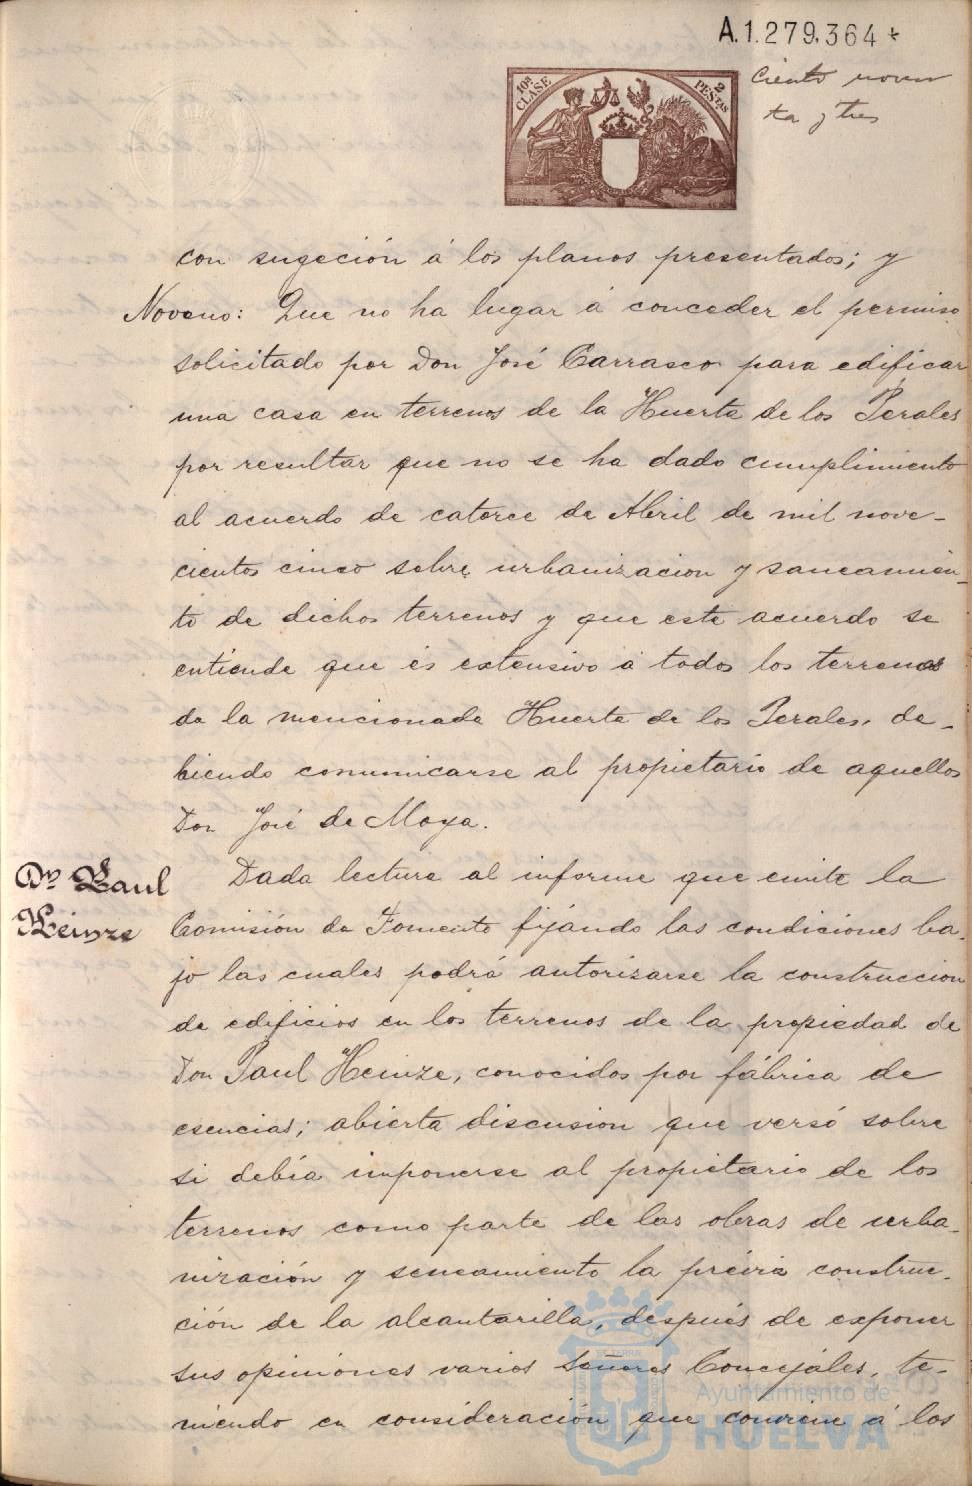 A.1.279.364 *
Ciento noven
ta y tres
10ª CLASE
2 PESETAS
con sugeción á los planos presentados; y
Noveno: Que no ha lugar á conceder el permiso
solicitado por Don José Carrasco para edificar
una casa en terrenos de la Huerta de los Perales
por resultar que no se ha dado cumplimiento
al acuerdo de catorce de Abril de mil nove-
cientos cinco sobre urbanizacion y saneamien-
to de dichos terrenos y que este acuerdo se
entiende que és extensivo á todos los terrenos
de la mencionada Huerta de los Perales, de-
biendo comunicarse al propietario de aquellos
Don José de Moya.
Dn. Paul
Heinze
Dada lectura al informe que emite la
Comisión de Fomento fijando las condiciones ba-
jo las cuales podrá autorizarse la construccion
de edificios en los terrenos de la propiedad de
Don Paul Heinze, conocidos por fábrica de
esencias; abierta discusion que versó sobre
si debía imponerse al propietario de los
terrenos como parte de las obras de urba-
nización y saneamiento la prévia construc-
ción de la alcantarilla, después de exponer
sus opiniones varios Señores Concejáles, te-
niendo en consideración que convien á los
Ayuntamiento de
HUELVA